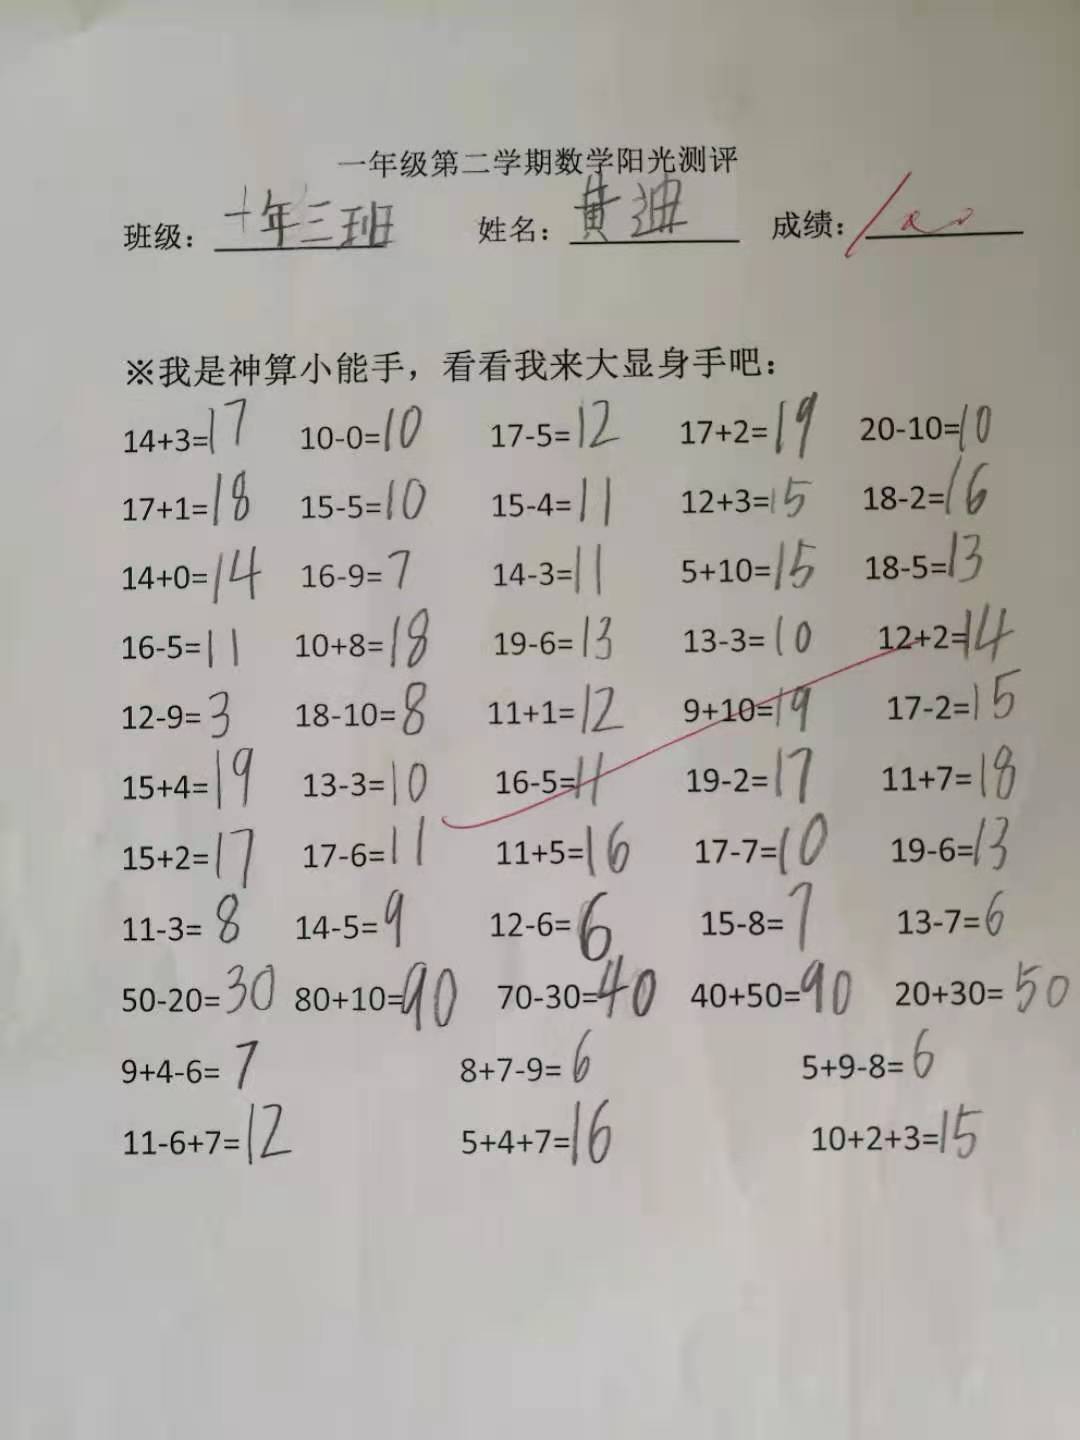 一年级第二学期数学阳光测评
班级：一年三班 姓名：黄迪 成绩：100
※我是神算小能手，看看我来大显身手吧：
14+3=17 10-0=10 17-5=12 17+2=19 20-10=10
17+1=18 15-5=10 15-4=11 12+3=15 18-2=16
14+0=14 16-9=7 14-3=11 5+10=15 18-5=13
16-5=11 10+8=18 19-6=13 13-3=10 12+2=14
12-9=3 18-10=8 11+1=12 9+10=19 17-2=15
15+4=19 13-3=10 16-5=11 19-2=17 11+7=18
15+2=17 17-6=11 11+5=16 17-7=10 19-6=13
11-3=8 14-5=9 12-6=6 15-8=7 13-7=6
50-20=30 80+10=90 70-30=40 40+50=90 20+30=50
9+4-6=7 8+7-9=6 5+9-8=6
11-6+7=12 5+4+7=16 10+2+3=15